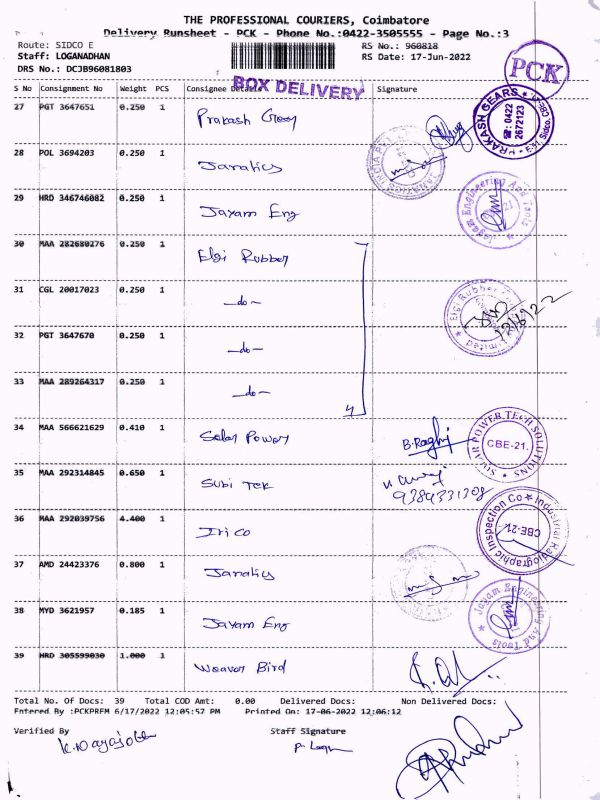 THE PROFESSIONAL COURIERS, Coimbatore
Delivery Runsheet - PCK - Phone No.:0422-3505555 - Page No.:3
Route: SIDCO E
RS No.: 960818
Staff: LOGANADHAN
RS Date: 17-Jun-2022
DRS No.: DCJB96081803
PCK
BOX DELIVERY
S No Consignment No Weight PCS Consignee Details Signature
27 PGT 3647651 0.250 1 Prakash Gears
PRAKASH GEARS
☎: 0422
2672123
28 POL 3694203 0.250 1 Janatics
29 HRD 346746082 0.250 1 Jayam Eng
Jayam Engineering And Tools
30 MAA 282680276 0.250 1 Elgi Rubber
31 CGL 20017023 0.250 1 -do-
Elgi Rubber
Limited
32 PGT 3647670 0.250 1 -do-
33 MAA 289264317 0.250 1 -do-
4
34 MAA 566621629 0.410 1 Solar Power
B.Raghu
POWER TECH SOLUTIONS
CBE-21.
35 MAA 292314845 0.650 1 Subi Tek
9384331308
36 MAA 292039756 4.400 1 Irico
Industrial Radiographic Inspection Co
CBE-21
37 AMD 24423376 0.800 1 Janatics
38 MYD 3621957 0.185 1 Jayam Eng
Jayam Engineering And Tools
39 HRD 305599030 1.000 1 Weaver Bird
Total No. Of Docs: 39 Total COD Amt: 0.00 Delivered Docs: Non Delivered Docs:
Entered By :PCKPREM 6/17/2022 12:05:57 PM Printed On: 17-06-2022 12:06:12
Verified By Staff Signature